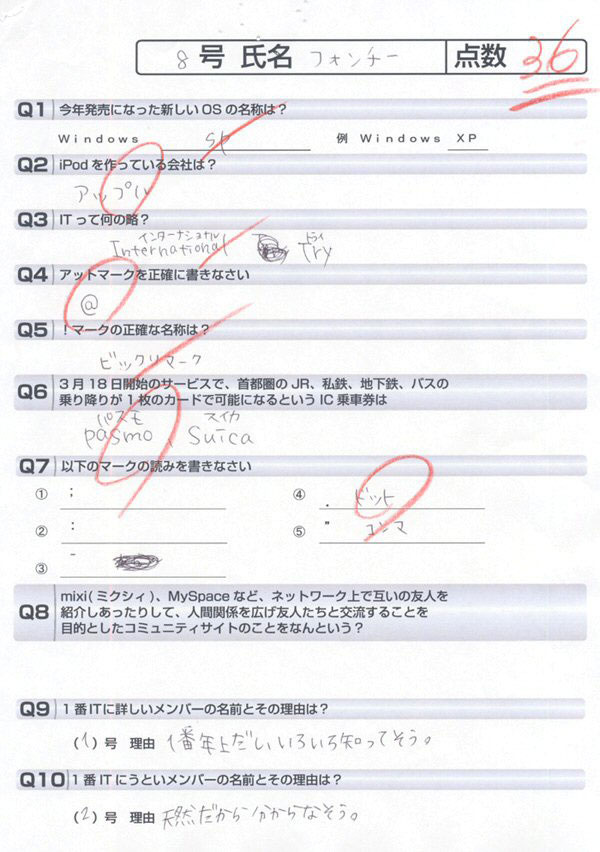 8 号 氏名 フォンチー 点数 36
Q1 今年発売になった新しいOSの名称は？
Windows sp 例 Windows XP
Q2 iPodを作っている会社は？
アップル
Q3 ITって何の略？
インターナショナル トライ
International Try
Q4 アットマークを正確に書きなさい
@
Q5 ！マークの正確な名称は？
ビックリマーク
Q6 3月18日開始のサービスで、首都圏のJR、私鉄、地下鉄、バスの
乗り降りが1枚のカードで可能になるというIC乗車券は
パスモ スイカ
pasmo, Suica
Q7 以下のマークの読みを書きなさい
① ; ④ . ドット
② : ⑤ " コンマ
③ ‾
Q8 mixi(ミクシィ)、MySpaceなど、ネットワーク上で互いの友人を
紹介しあったりして、人間関係を広げ友人たちと交流することを
目的としたコミュニティサイトのことをなんという？
Q9 1番ITに詳しいメンバーの名前とその理由は？
(1) 号 理由 1番年上だし、いろいろ知ってそう。
Q10 1番ITにうといメンバーの名前とその理由は？
(2) 号 理由 天然だから分からなそう。